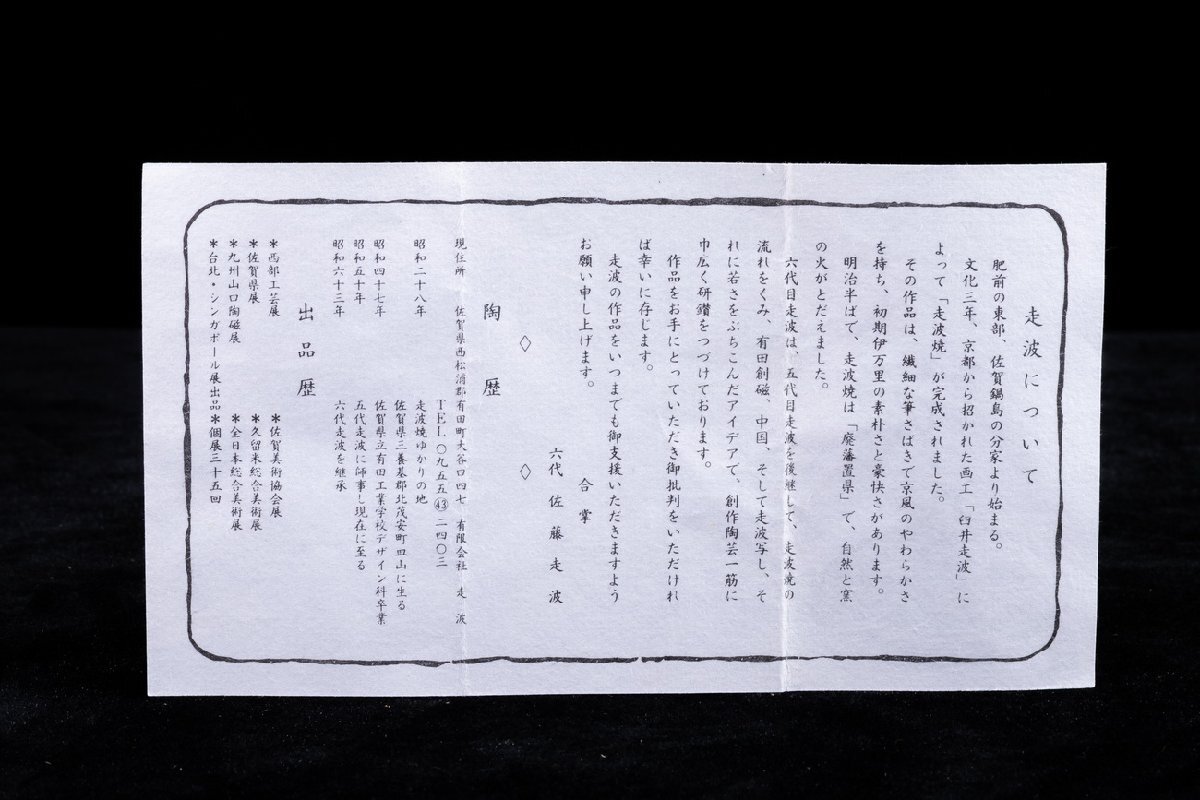 走波について
肥前の東部、佐賀鍋島の分家より始まる。
文化三年、京都から招かれた画工「臼井走波」に
よって「走波焼」が完成されました。
その作品は、繊細な筆さばきで京風のやわらかさ
を持ち、初期伊万里の素朴さと豪快さがあります。
明治半ばで、走波焼は「廃藩置県」で、自然と窯
の火がとだえました。
六代目走波は、五代目走波を後継して、走波焼の
流れをくみ、有田創磁、中国、そして走波写し、そ
れに若さをぶちこんだアイデアで、創作陶芸一筋に
巾広く研鑽をつづけております。
作品をお手にとっていただき御批判をいただけれ
ば幸いに存じます。
走波の作品をいつまでも御支援いただきますよう
お願い申し上げます。
合掌
六代 佐藤走波
◇ ◇
陶歴
現住所 佐賀県西松浦郡有田町大谷口四七 有限会社 走波
TEL〇九五五㊸二四〇三
昭和二十八年 走波焼ゆかりの地
佐賀県三養基郡北茂安町皿山に生る
昭和四十七年 佐賀県立有田工業学校デザイン科卒業
昭和五十年 五代走波に師事し現在に至る
昭和六十三年 六代走波を継承
出品歴
＊西部工芸展 ＊佐賀美術協会展
＊佐賀県展 ＊久留米総合美術展
＊九州山口陶磁展 ＊全日本総合美術展
＊台北・シンガポール展出品＊個展三十五回